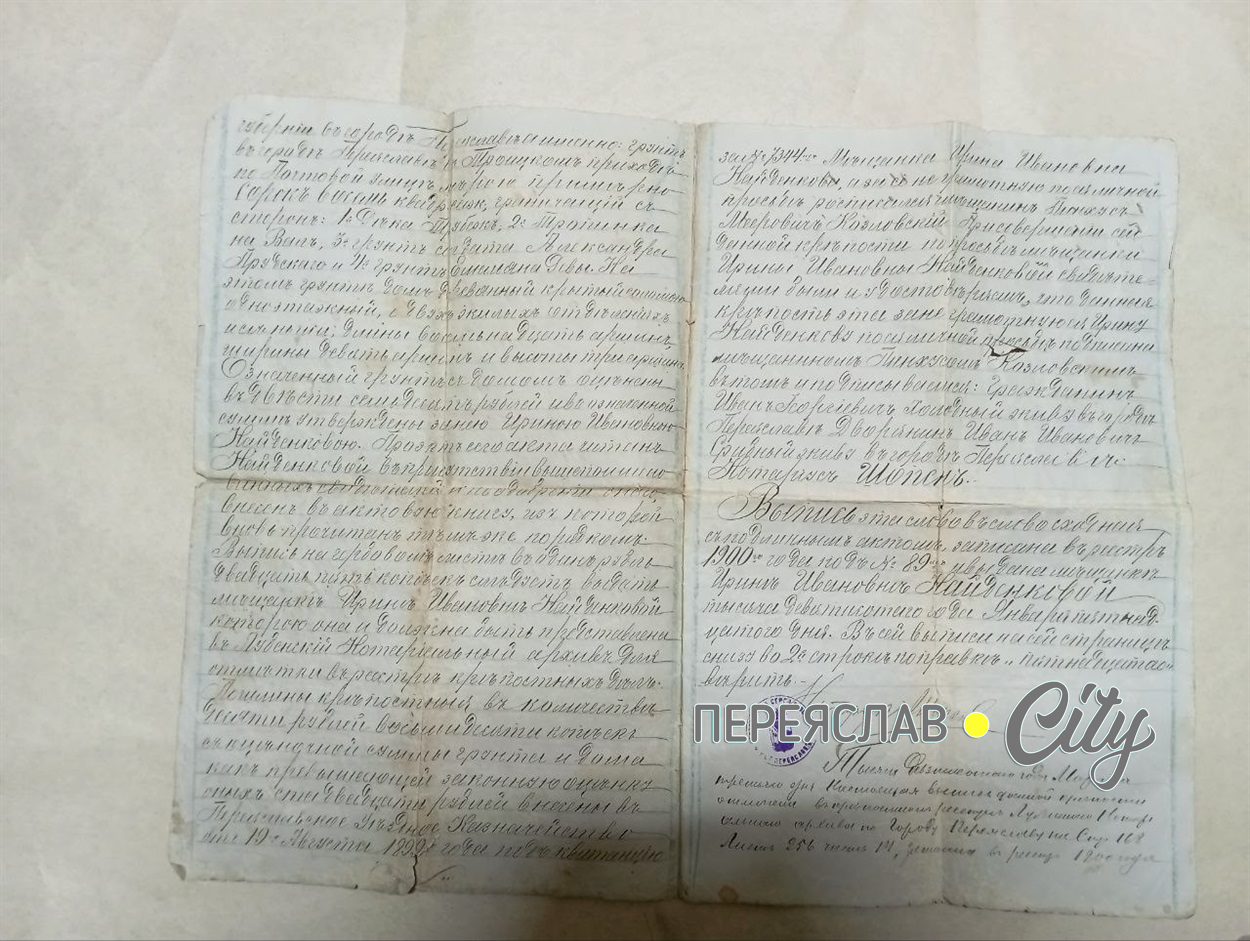 губернiи въ городѣ Переяславѣ а именно: грунтъ
въ городѣ Переяславѣ въ Троицкомъ приходѣ
по Почтовой улицѣ, мѣрою примѣрно
сорокъ восемь кв. саж., граничащiй съ
сторонъ: 1е Рѣчка Трубежъ, 2е Тропинка
на Валъ, 3е грунтъ солдата Александра
и 4е грунтъ На
этомъ грунтѣ домъ деревянный крытый соломою
одноэтажный, о двухъ жилыхъ отдѣленiяхъ
длины восемнадцать аршинъ,
ширины девять аршинъ и высоты три аршина
Означенный грунтъ съ домомъ оцѣнены
въ двѣсти семьдесятъ рублей и въ означенной
суммѣ утверждены за нею Ириною Ивановною
Найденковою. Проэктъ сего акта читанъ
Найденковой въ присутствiи вышепоимено
ванныхъ свидѣтелей и по одобренiи сполна
внесенъ въ актовую книгу, изъ которой
вновь прочитанъ тѣмъ же порядкомъ.
Выпись на гербовомъ листѣ въ одинъ рубль
двадцать пять копѣекъ слѣдуетъ выдать
мѣщанкѣ Иринѣ Ивановнѣ Найденковой
которою она и должна быть представлена
въ Лубенскiй Нотарiальный архивъ для
отмѣтки въ реестрѣ крѣпостныхъ дѣлъ.
Пошлины крѣпостныя въ количествѣ
десяти рублей восьмидесяти копѣекъ
съ оцѣночной суммы грунта и дома
какъ превышающей законную оценку
оныхъ ста двадцати рублей внесены въ
Переяславское Уѣздное Казначейство
19го Августа 1899 года подъ квитанцiю
за № 7344. Мѣщанка Ирина Ивановна
Найденкова, а за ея неграмотную по ея личной
просьбѣ росписался мѣщанинъ Пинхусъ
Мееровичъ Козловскiй. При совершенiи сей
данной крѣпости по просьбѣ мѣщанки
Ирины Ивановны Найденковой свидѣте-
лями были и удостовѣряемъ, что данная
крѣпость эта за неграмотную ея Ирину
Найденкову по ея личной просьбѣ подписана
мѣщаниномъ Пинхусомъ Козловскимъ
въ томъ и подписываемся: гражданинъ
Иванъ Георгiевичъ живу въ городѣ
Переяславѣ. Дворянинъ Иванъ Ивановичъ
живу въ городѣ Переяславѣ.
Нотарiусъ Шопенъ.
Выпись эта слово въ слово сходная
съ подлиннымъ актомъ, записана въ реестръ
1900го года подъ № 89 и выдана мѣщанкѣ
Иринѣ Ивановнѣ Найденковой
тысяча девятисотаго года Января пятнад-
цатого дня. Въ сей выписи на сей страницѣ
снизу во 2й строкѣ поправкѣ „пятнадцатаго"
вѣрить.
ПЕРЕЯСЛАВ City
Тысяча девятисотаго года Марта
третьяго дня настоящая выпись данной крѣпости
отмѣчена въ крѣпостномъ реестрѣ Лубенскаго Нотарi
альнаго архива по Городу Переяславу на Стр. 168